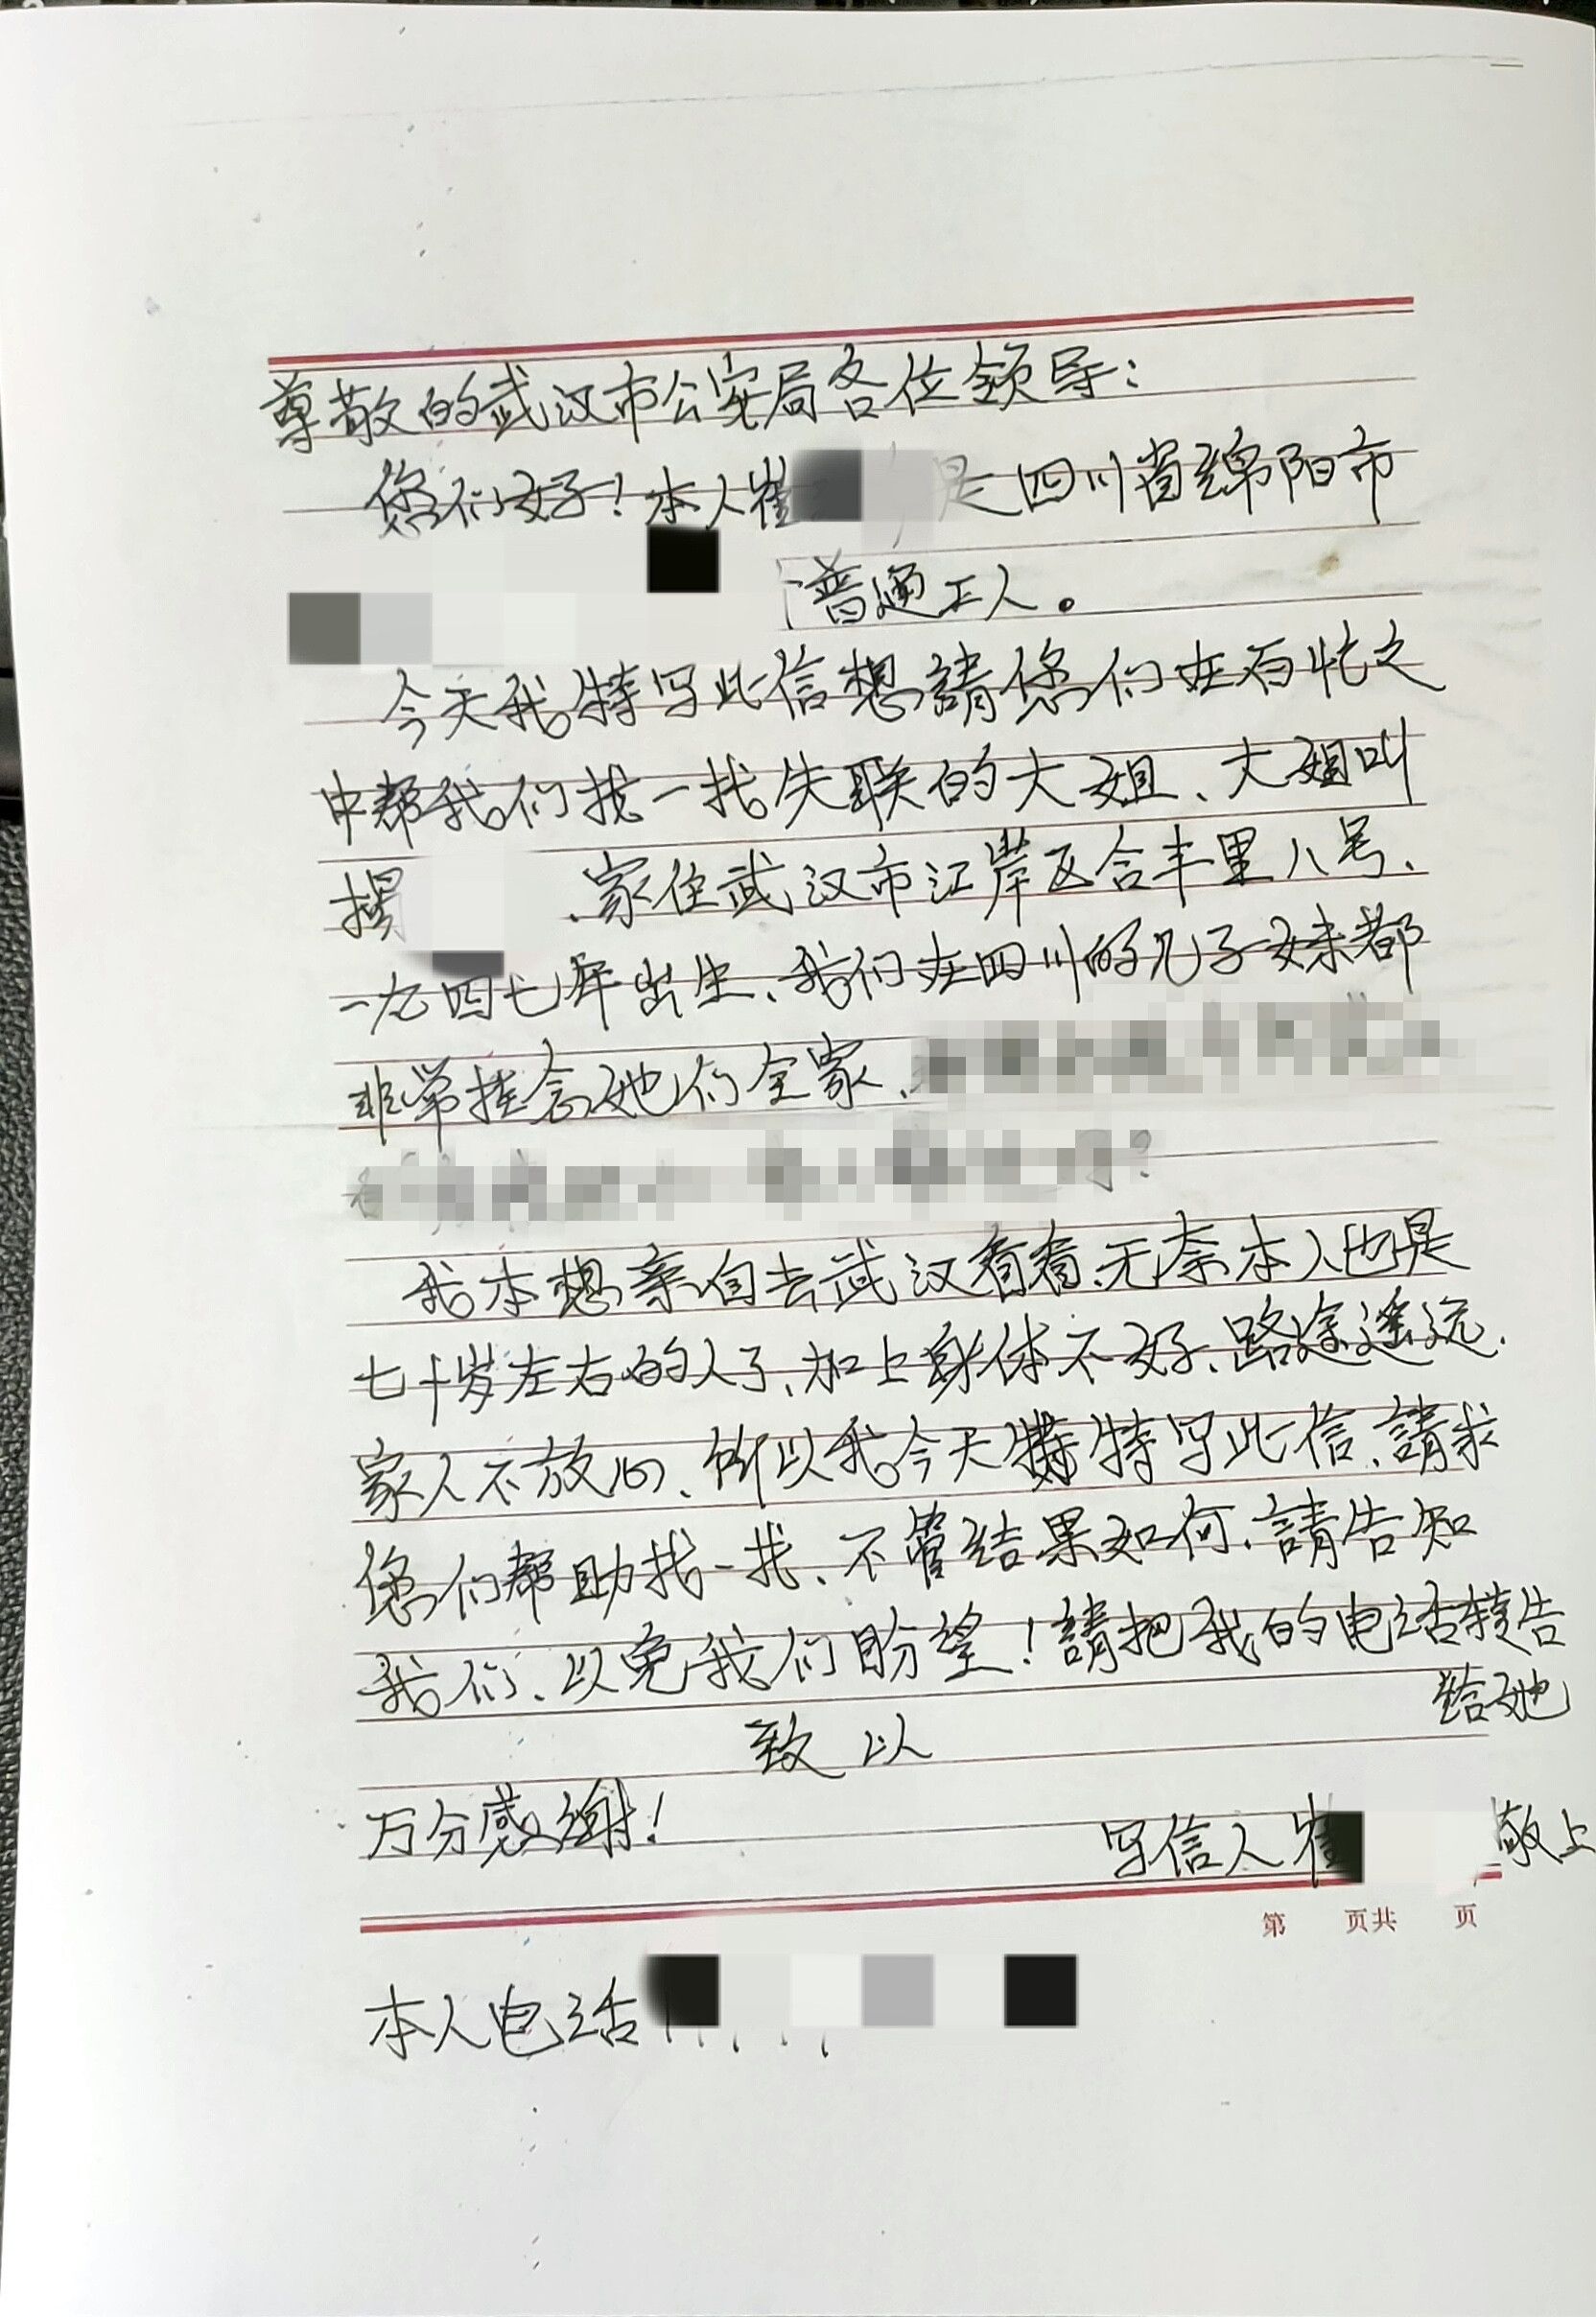 尊敬的武汉市公安局各位领导：
您们好！本人崔 是四川省绵阳市
普通工人。
今天我特写此信想請您们在百忙之
中帮我们找一找失联的大姐、大姐叫
、家住武汉市江岸区合丰里八号、
一九四七年出生、我们在四川的几子妹都
非常挂念她们全家、
我本想亲自去武汉看看、无奈本人也是
七十岁左右的人了、加上身体不好、路途遥远.
家人不放心、所以我今天特写此信、請求
您们帮助找一找、不管结果如何、請告知
我们、以免我们盼望！請把我的电话转告
给她
致以
万分感谢！
写信人崔 敬上
第 页共 页
本人电话